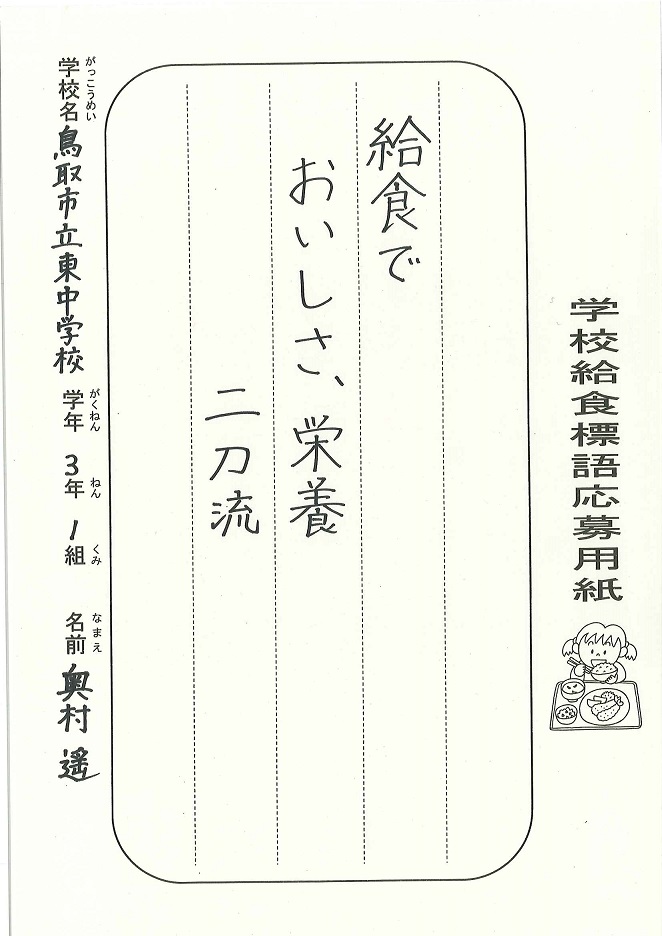 学校給食標語応募用紙
給食で
おいしさ、栄養
二刀流
がっこうめい
学校名 鳥取市立東中学校
がくねん ねん くみ
学年 3年 1組
なまえ
名前 奥村 遥